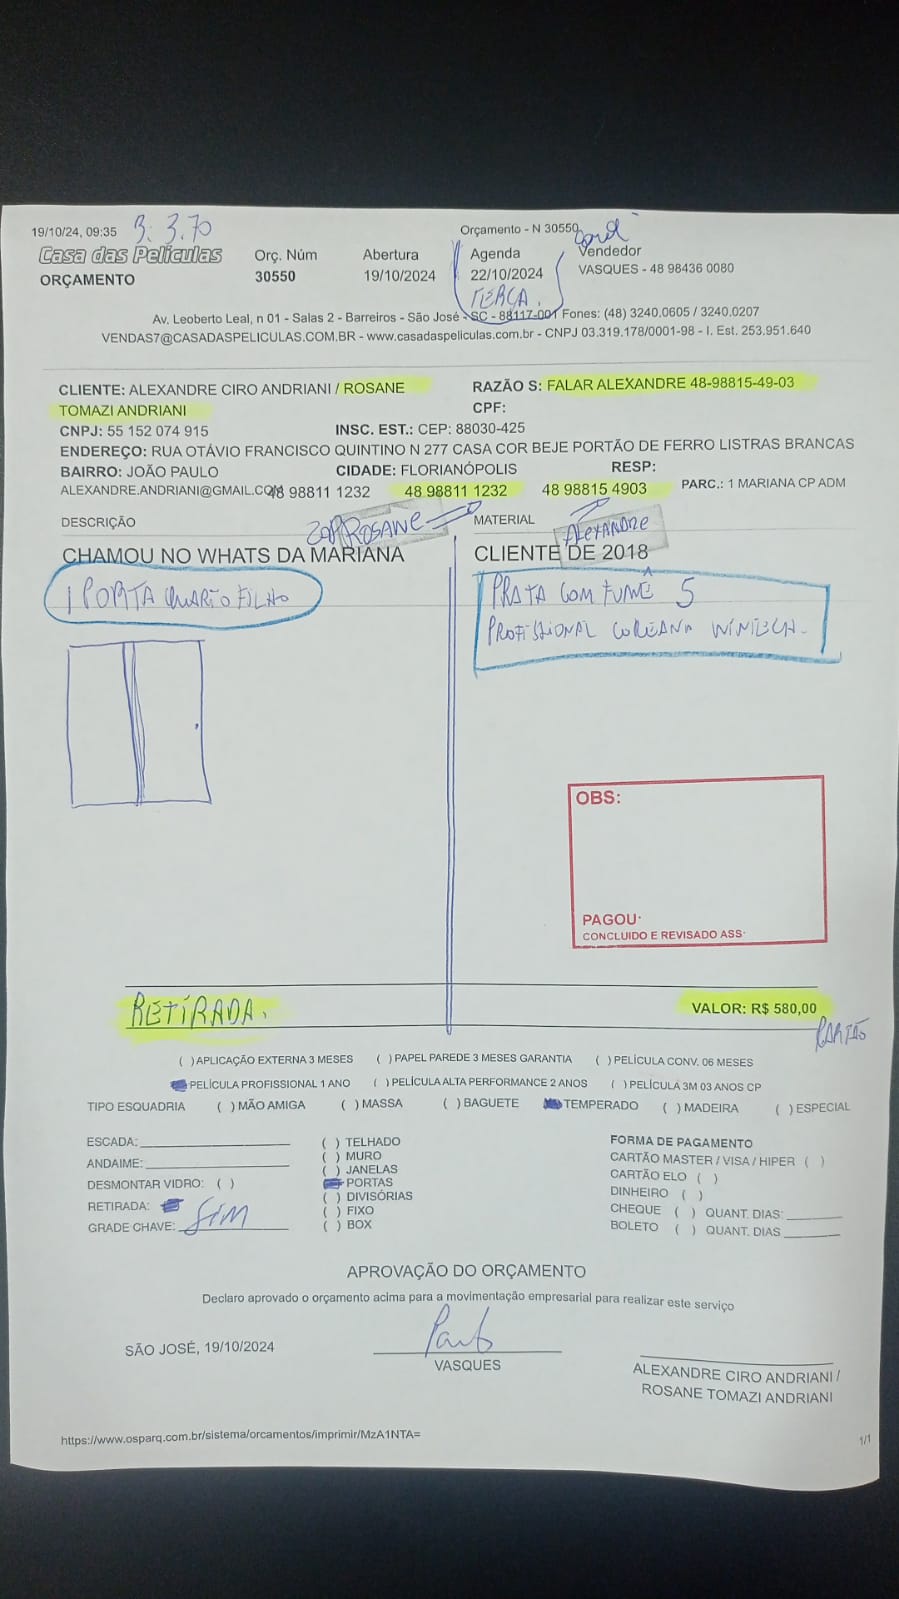 19/10/24, 09:35 3: 3.70 Orçamento - N 30550
Casa das Películas Orç. Núm Abertura Agenda Vendedor
ORÇAMENTO 30550 19/10/2024 22/10/2024 VASQUES - 48 98436 0080
TERÇA.
Av. Leoberto Leal, n 01 - Salas 2 - Barreiros - São José - SC - 88117-001 Fones: (48) 3240.0605 / 3240.0207
VENDAS7@CASADASPELICULAS.COM.BR - www.casadaspeliculas.com.br - CNPJ 03.319.178/0001-98 - I. Est. 253.951.640
CLIENTE: ALEXANDRE CIRO ANDRIANI / ROSANE RAZÃO S: FALAR ALEXANDRE 48-98815-49-03
TOMAZI ANDRIANI CPF:
CNPJ: 55 152 074 915 INSC. EST.: CEP: 88030-425
ENDEREÇO: RUA OTÁVIO FRANCISCO QUINTINO N 277 CASA COR BEJE PORTÃO DE FERRO LISTRAS BRANCAS
BAIRRO: JOÃO PAULO CIDADE: FLORIANÓPOLIS RESP:
ALEXANDRE.ANDRIANI@GMAIL.COM 48 98811 1232 48 98811 1232 48 98815 4903 PARC.: 1 MARIANA CP ADM
DESCRIÇÃO ROSANE MATERIAL ALEXANDRE
CHAMOU NO WHATS DA MARIANA CLIENTE DE 2018
1 PORTA QUARTO FILHO PRATA COM FUMÊ 5
PROFISSIONAL COREANA WINTECH.
OBS:
PAGOU:
CONCLUIDO E REVISADO ASS:
RETIRADA. VALOR: R$ 580,00
CARTÃO
( ) APLICAÇÃO EXTERNA 3 MESES ( ) PAPEL PAREDE 3 MESES GARANTIA ( ) PELÍCULA CONV. 06 MESES
PELÍCULA PROFISSIONAL 1 ANO ( ) PELÍCULA ALTA PERFORMANCE 2 ANOS ( ) PELÍCULA 3M 03 ANOS CP
TIPO ESQUADRIA ( ) MÃO AMIGA ( ) MASSA ( ) BAGUETE TEMPERADO ( ) MADEIRA ( ) ESPECIAL
ESCADA: ( ) TELHADO FORMA DE PAGAMENTO
ANDAIME: ( ) MURO CARTÃO MASTER / VISA / HIPER ( )
( ) JANELAS CARTÃO ELO ( )
DESMONTAR VIDRO: ( ) PORTAS DINHEIRO ( )
RETIRADA: ( ) DIVISÓRIAS CHEQUE ( ) QUANT. DIAS:
GRADE CHAVE: SIM ( ) FIXO BOLETO ( ) QUANT. DIAS
( ) BOX
APROVAÇÃO DO ORÇAMENTO
Declaro aprovado o orçamento acima para a movimentação empresarial para realizar este serviço
SÃO JOSÉ, 19/10/2024
VASQUES
ALEXANDRE CIRO ANDRIANI /
ROSANE TOMAZI ANDRIANI
https://www.osparq.com.br/sistema/orcamentos/imprimir/MzA1NTA= 1/1